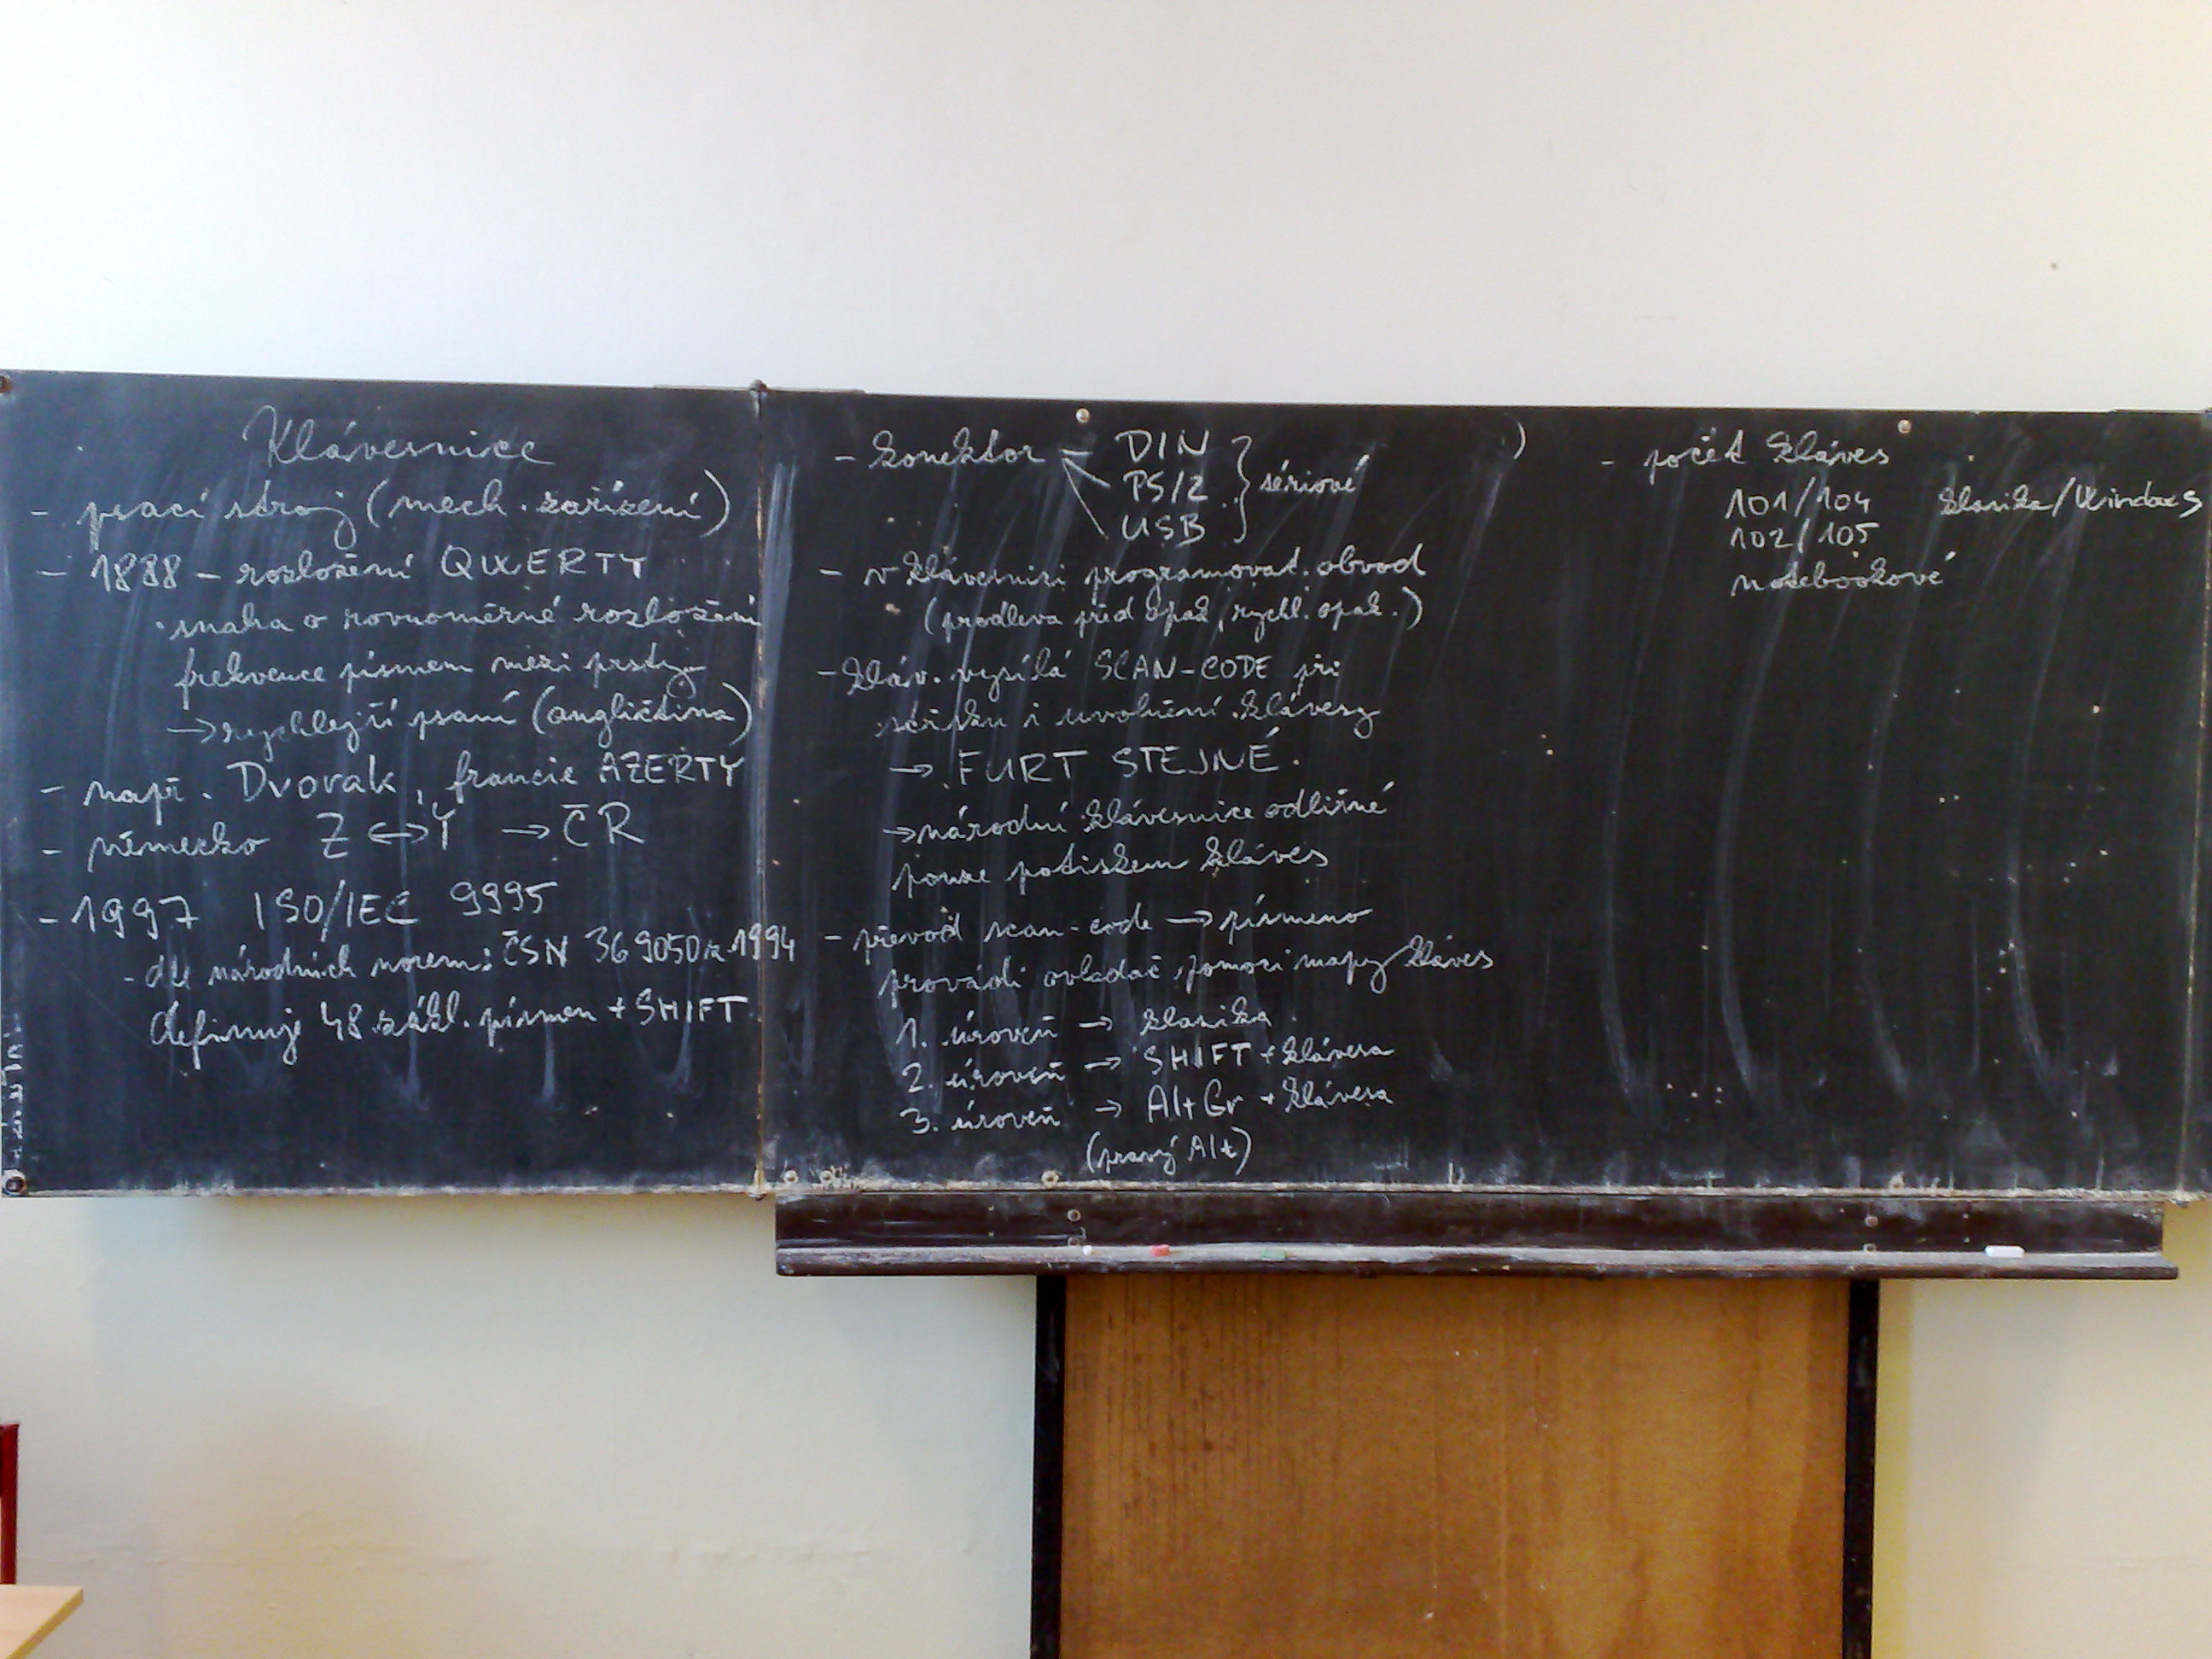 Klávesnice
- psací stroj (mech. zařízení)
- 1888 - rozložení QWERTY
• snaha o rovnoměrné rozložení
frekvence písmen mezi prsty
→ rychlejší psaní (angličtina)
- např. Dvorak, francie AZERTY
- německo Z ↔ Y → ČR
- 1997 ISO/IEC 9995
- dle národních norem: ČSN 36 9050 z 1994
definuje 48 zákl. písmen + SHIFT
- konektor - DIN
PS/2
USB
} sériové
- v klávesnici programovat. obvod
(prodleva před opak, rychl. opak.)
- kláv. vysílá SCAN-CODE při
stisku i uvolnění klávesy
→ FURT STEJNÉ.
→ národní klávesnice odlišné
pouze potiskem kláves
- převod scan-code → písmeno
provádí ovladač pomocí mapy kláves
1. úroveň → klasika
2. úroveň → SHIFT + klávesa
3. úroveň → AltGr + klávesa
(pravý Alt)
)
- počet kláves
101/104 klasika/Windows
102/105
notebookové